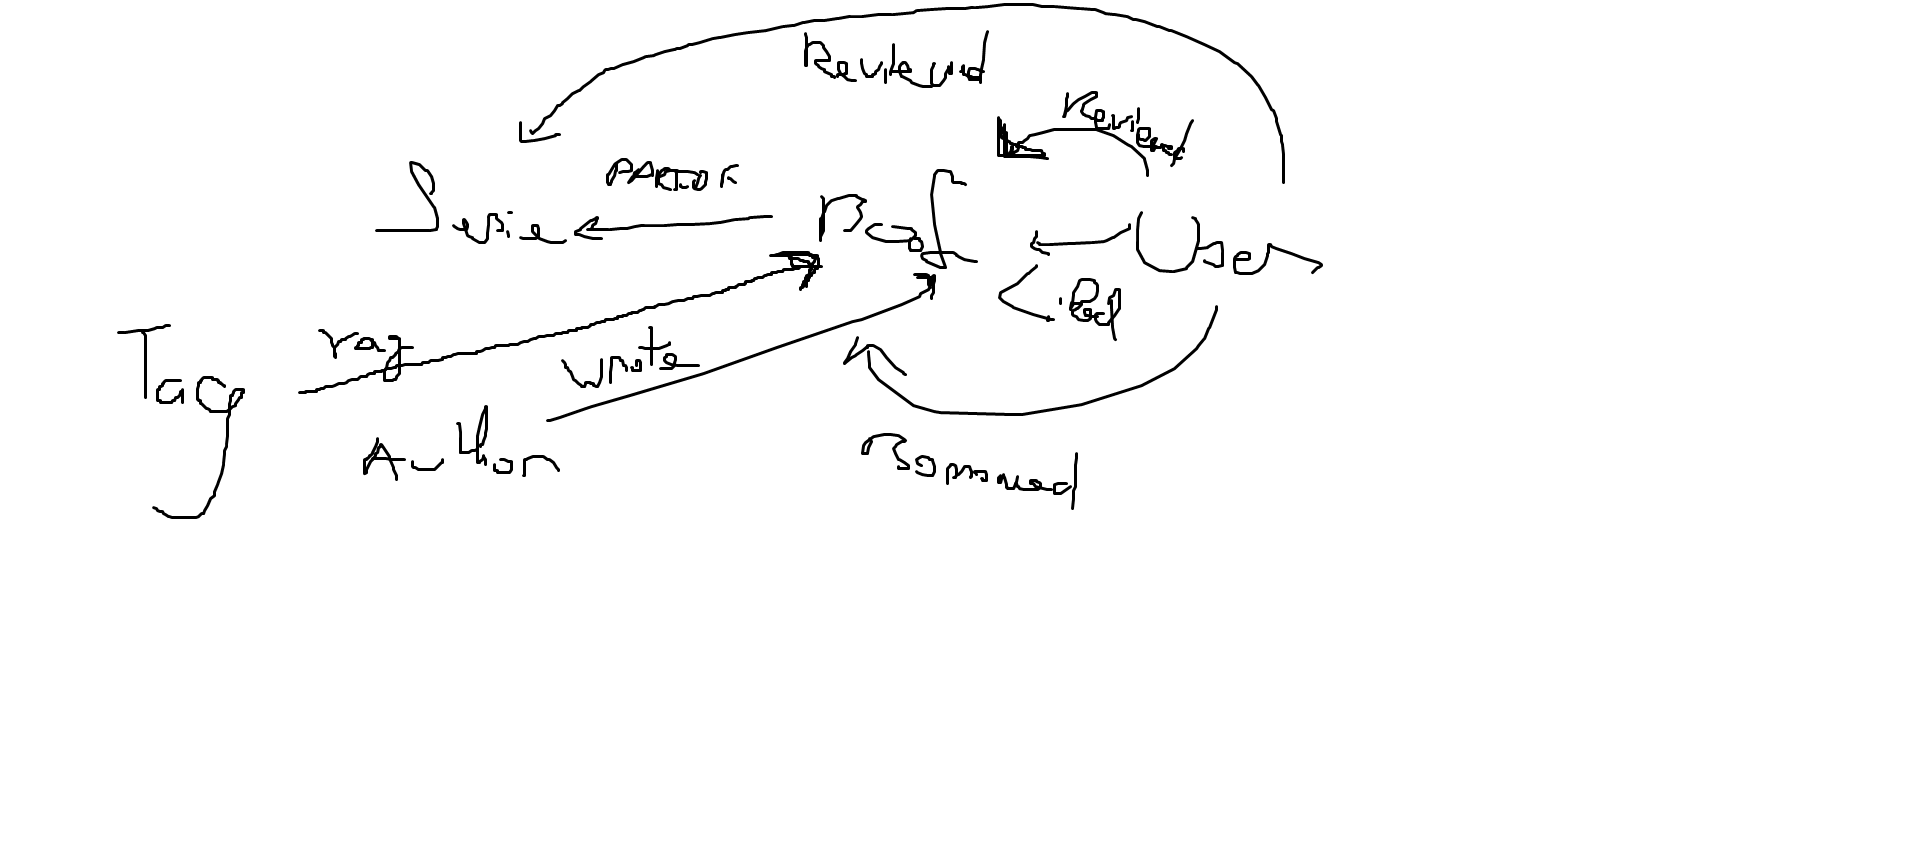 Reviewed
Reviewed
PARTOF
Serie
Book
User
Tag
wrote
Tag
Author
Borrowed